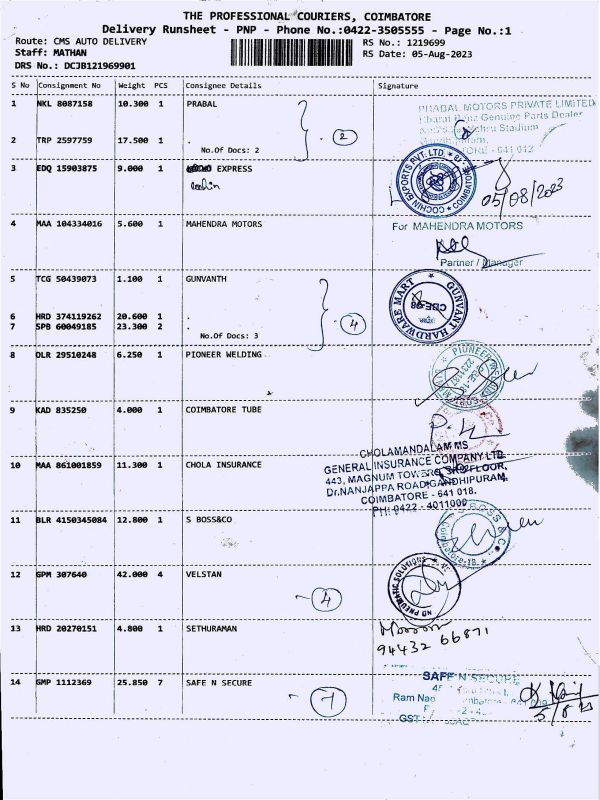 THE PROFESSIONAL COURIERS, COIMBATORE
Delivery Runsheet - PNP - Phone No.:0422-3505555 - Page No.:1
Route: CMS AUTO DELIVERY
RS No.: 1219699
Staff: MATHAN
RS Date: 05-Aug-2023
DRS No.: DCJB121969901
S No Consignment No Weight PCS Consignee Details Signature
1 NKL 8087158 10.300 1 PRABAL
PRABAL MOTORS PRIVATE LIMITED
Bharat Benz Genuine Parts Dealer
Stadium
2 TRP 2597759 17.500 1 .
2
No.Of Docs: 2
3 EDQ 15903875 9.000 1 EXPRESS
cochin
COCHIN EXPORTS PVT. LTD.
05/08/2023
4 MAA 104334016 5.600 1 MAHENDRA MOTORS
For MAHENDRA MOTORS
Partner / Manager
5 TCG 50439073 1.100 1 GUNVANTH
GUNVANT HARDWARE MART
CBE-98
6 HRD 374119262 20.600 1 .
7 SPB 60049185 23.300 2 .
4
No.Of Docs: 3
8 OLR 29510248 6.250 1 PIONEER WELDING
PIONEER
9 KAD 835250 4.000 1 COIMBATORE TUBE
10 MAA 861001859 11.300 1 CHOLA INSURANCE
CHOLAMANDALAM MS
GENERAL INSURANCE COMPANY LTD.
443, MAGNUM TOWERS, 3RD FLOOR,
Dr.NANJAPPA ROAD, GANDHIPURAM,
COIMBATORE - 641 018.
PH: 0422 - 4011000
11 BLR 4150345084 12.800 1 S BOSS&CO
BOSS & C
12 GPM 307640 42.000 4 VELSTAN
4
PNEUMATIC SOLUTIONS
13 HRD 20270151 4.800 1 SETHURAMAN
94432 66871
14 GMP 1112369 25.850 7 SAFE N SECURE
7
SAFE N SECURE
Ram Nag
GST